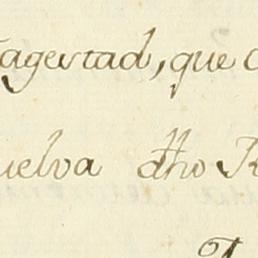 agestad, que
uelva dho R